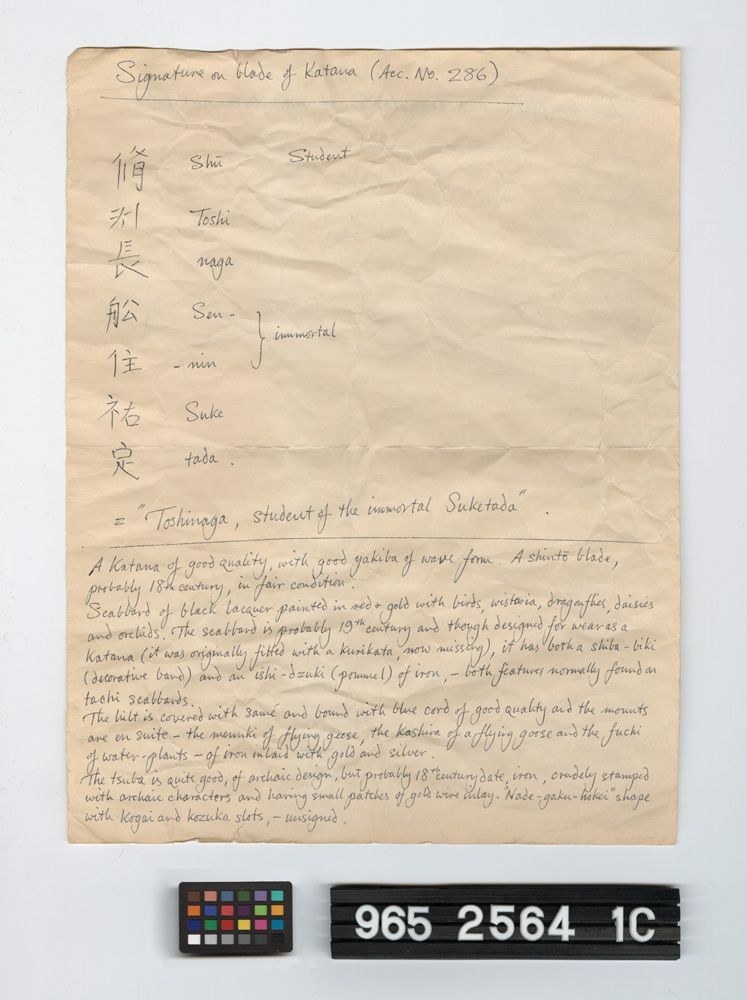 Signature on blade of Katana (Acc. No. 286)
脩 Shū Student
州 Toshi
長 naga
舩 Sen-
住 -nin } immortal
祐 Suke
定 tada.
= "Toshinaga, student of the immortal Suketada".
A Katana of good quality, with good yakiba of wave form. A shintō blade,
probably 18th century, in fair condition.
Scabbard of black lacquer painted in red & gold with birds, wistaria, dragonflies, daisies
and orchids. The scabbard is probably 19th century and though designed for wear as a
Katana (it was originally fitted with a kurikata, now missing), it has both a shiba-biki
(decorative band) and an ishi-dzuki (pommel) of iron, - both features normally found on
tachi scabbards.
The hilt is covered with samé and bound with blue cord of good quality and the mounts
are en suite - the menuki of flying geese, the kashira of a flying goose and the fuchi
of water-plants - of iron inlaid with gold and silver.
The tsuba is quite good, of archaic design, but probably 18th century date, iron, crudely stamped
with archaic characters and having small patches of gold wire inlay. "Nade-gaku-hokei" shape
with Kogai and kozuka slots, - unsigned.
965 2564 1C